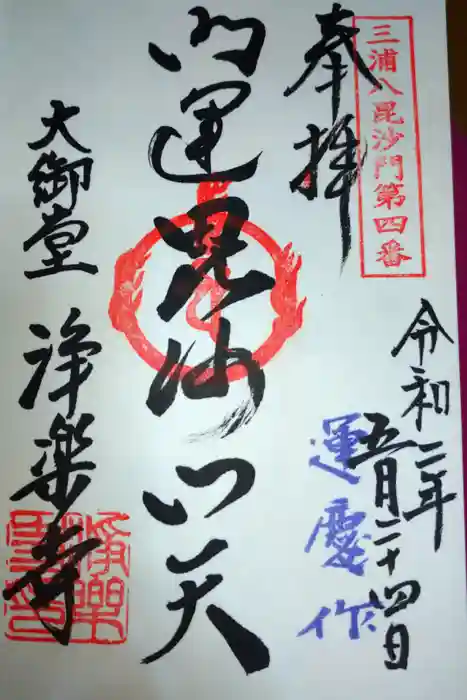 三浦八毘沙門第四番
奉拝
令和二年
五月二十四日
運慶作
開運毘沙門天
大御堂
浄楽寺